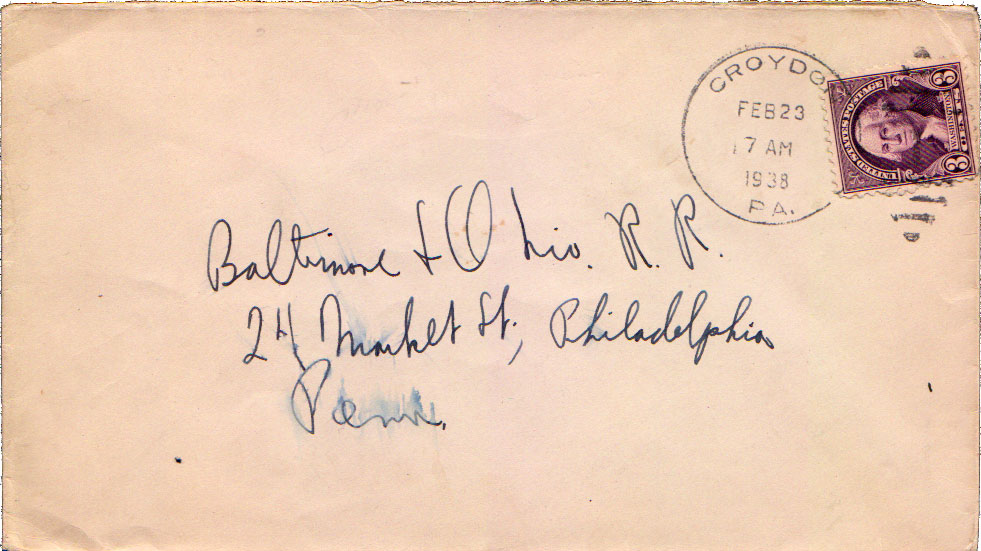 CROYDO
FEB 23
7 AM
1938
PA.
UNITED STATES POSTAGE
WASHINGTON
3 CENTS 3
Baltimore & Ohio. R. R.
24 Market St., Philadelphia
Penn.